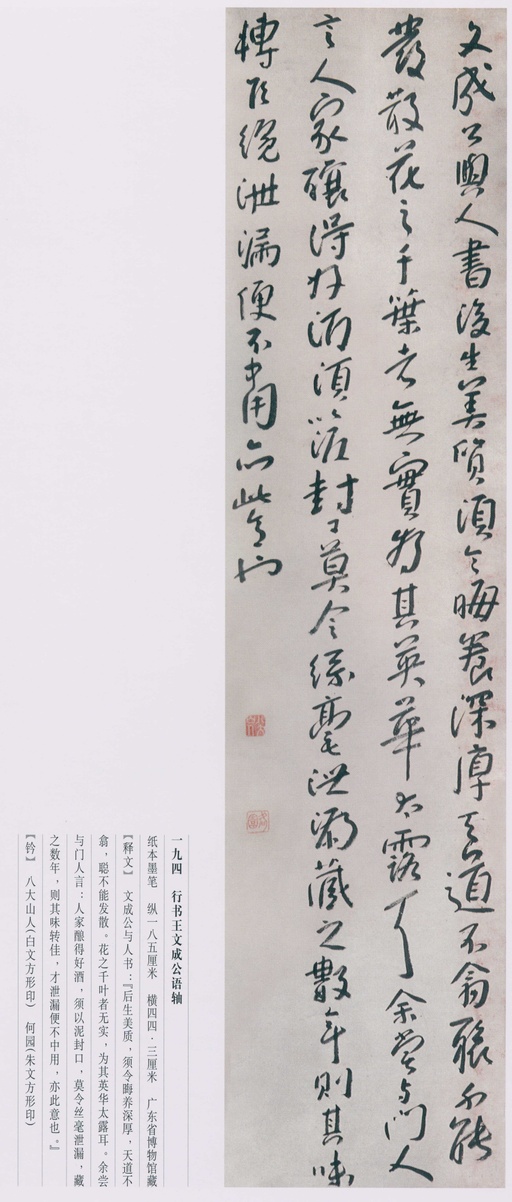 文成公與人書後生美質須令晦養深厚天道不翕聰不能
發散花之千葉者無實為其英華太露耳余嘗与门人
言人家釀得好酒須以泥封口莫令絲毫泄漏藏之數年則其味
轉佳纔泄漏便不中用亦此意也
一九四 行书王文成公语轴
纸本墨笔 纵一八五厘米 横四四·三厘米 广东省博物馆藏
【释文】 文成公与人书：『后生美质，须令晦养深厚，天道不
翕，聪不能发散。花之千叶者无实，为其英华太露耳。余尝
与门人言：人家酿得好酒，须以泥封口，莫令丝毫泄漏，藏
之数年，则其味转佳，才泄漏便不中用，亦此意也。』
【钤】 八大山人(白文方形印) 何园(朱文方形印)